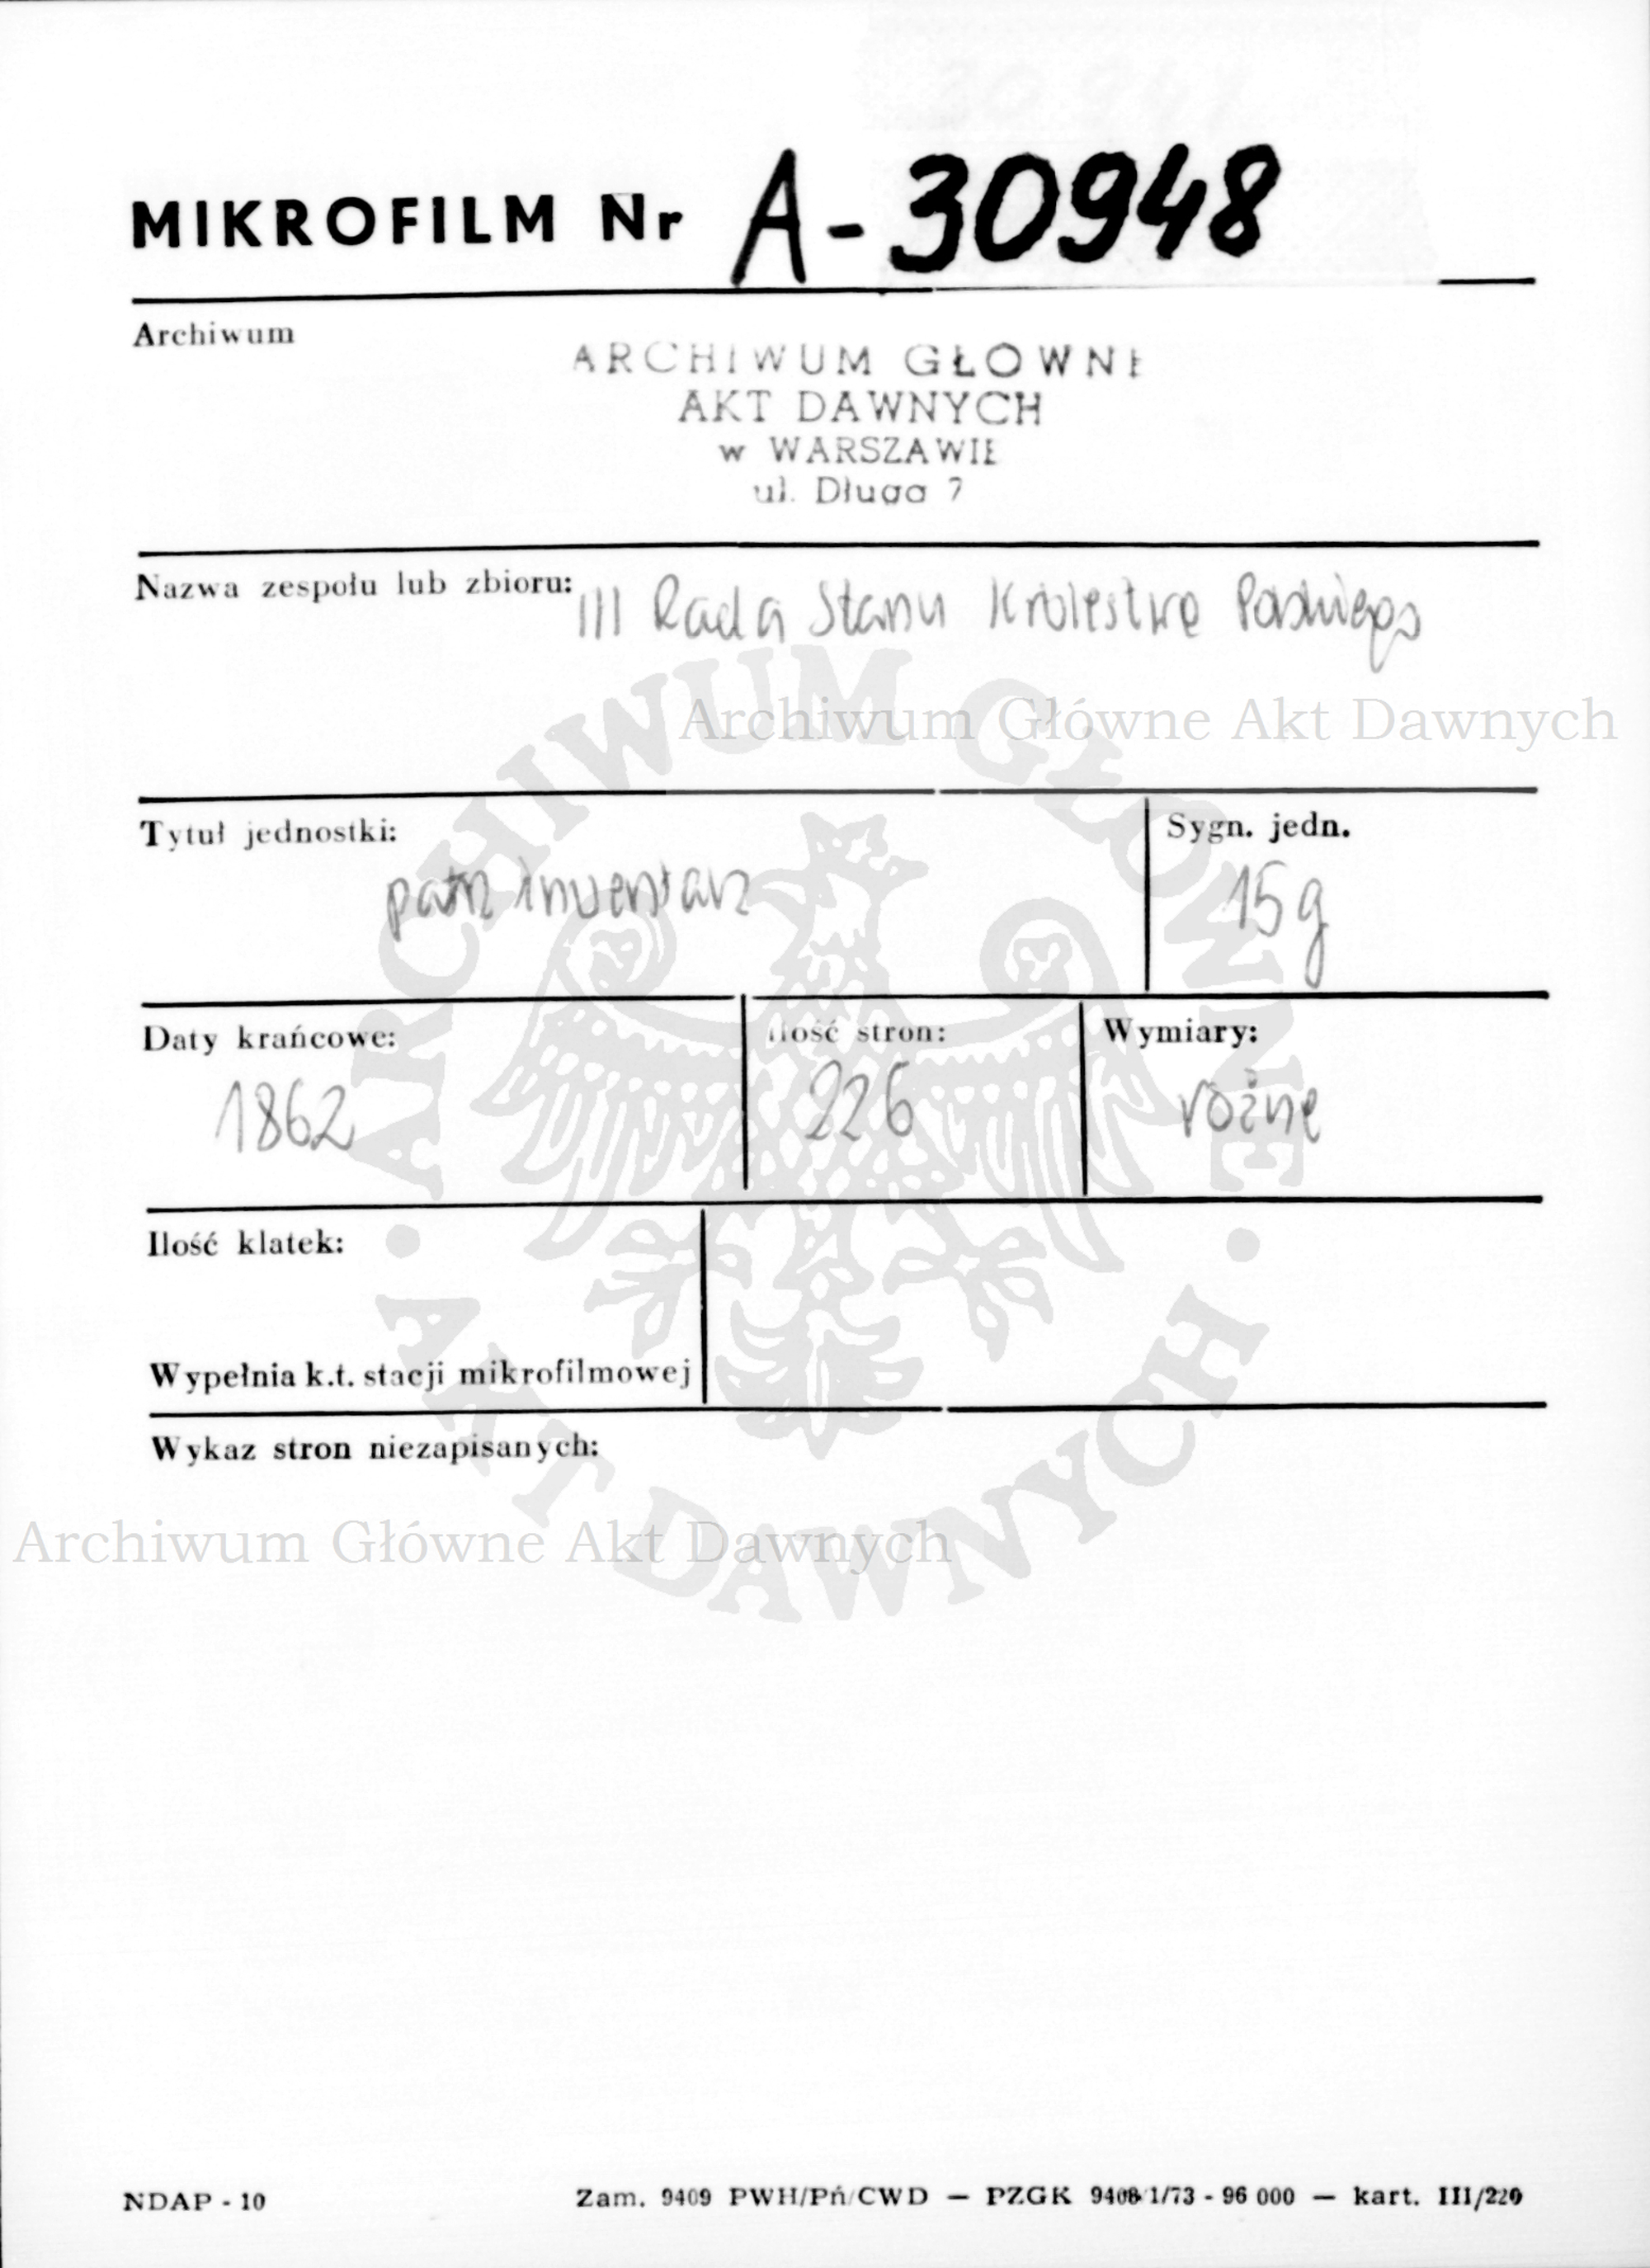 MIKROFILM Nr A-30948
Archiwum
ARCHIWUM GŁOWNE
AKT DAWNYCH
w WARSZAWIE
ul. Długa 7
Nazwa zespołu lub zbioru: III Rada Stanu Królestwa Polskiego
Archiwum Główne Akt Dawnych
Tytuł jednostki:
patrz Inwentarz
Sygn. jedn.
15g
Daty krańcowe:
1862
Ilość stron:
226
Wymiary:
rożne
Ilość klatek:
Wypełnia k.t. stacji mikrofilmowej
Wykaz stron niezapisanych:
Archiwum Główne Akt Dawnych
ARCHIWUM GŁÓWNE
AKT DAWNYCH
NDAP - 10
Zam. 9409 PWH/Pń/CWD — PZGK 9408/1/73 - 96 000 — kart. III/220